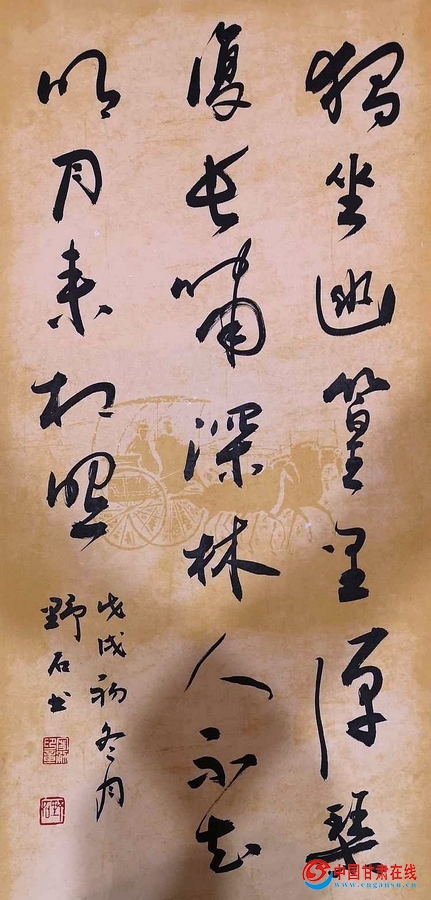 獨坐幽篁里彈琴
復長嘯深林人不知
明月来相照
戊戌初冬月
野石书
中国甘肃在线
www.cngansu.cn